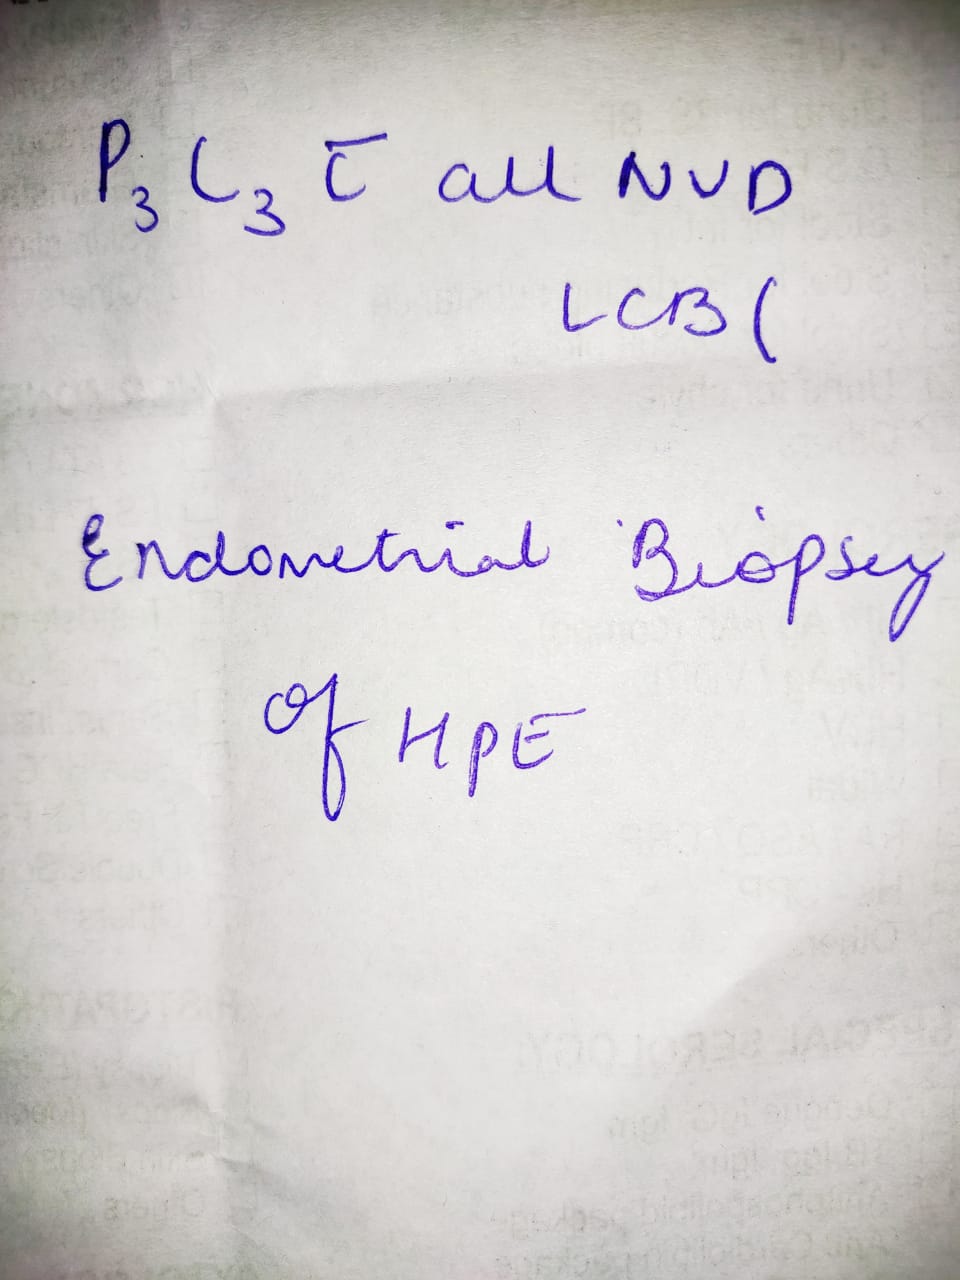 P3 L3 c̄ all NVD
LCB (
Endometrial Biopsey
of HPE